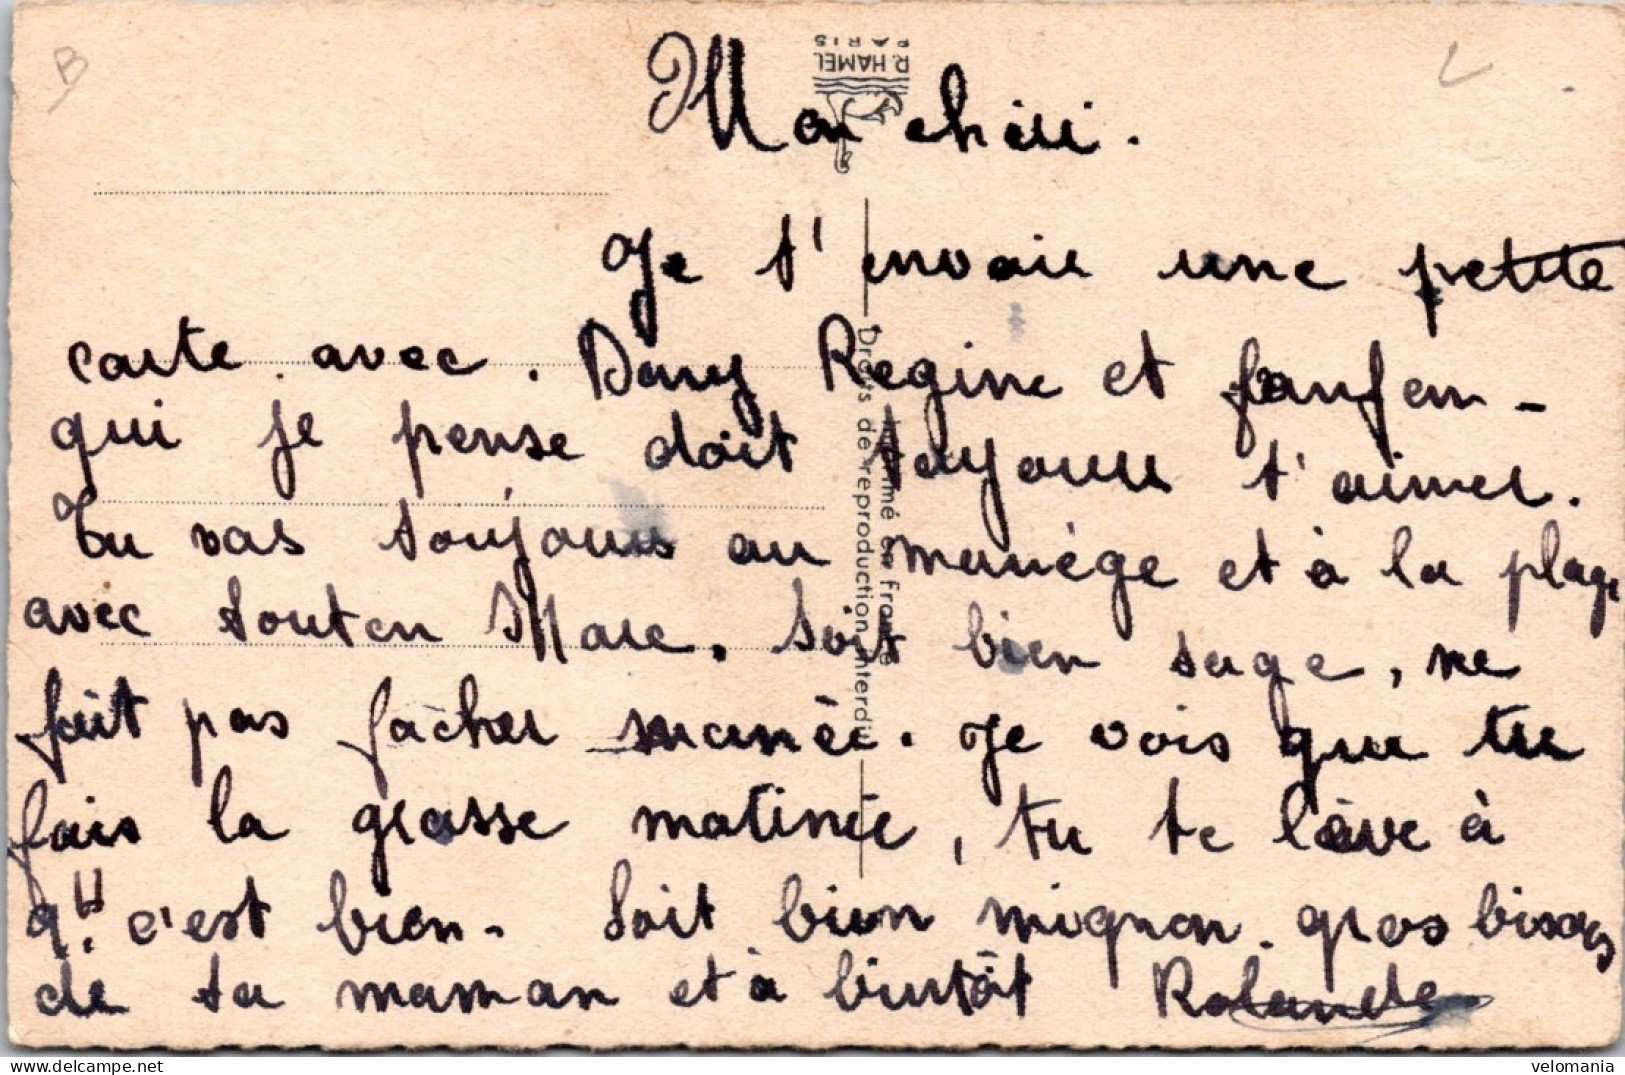 B
L
R. HAMEL
PARIS
Mon chéri.
Je t'envoie une petite
carte avec. Dany Regine et fanfan -
qui je pense doit toujours t'aimer.
Tu vas toujours au manège et à la plage
avec tonton Marc. Soit bien sage, ne
fait pas fâcher mamée. Je vois que tu
fais la grasse matinée, tu te lève à
9H. c'est bien. Soit bien mignon. gros bisous
de ta maman et à bientôt Rolande
Imprimé en France
Droits de reproduction interdits
velomania